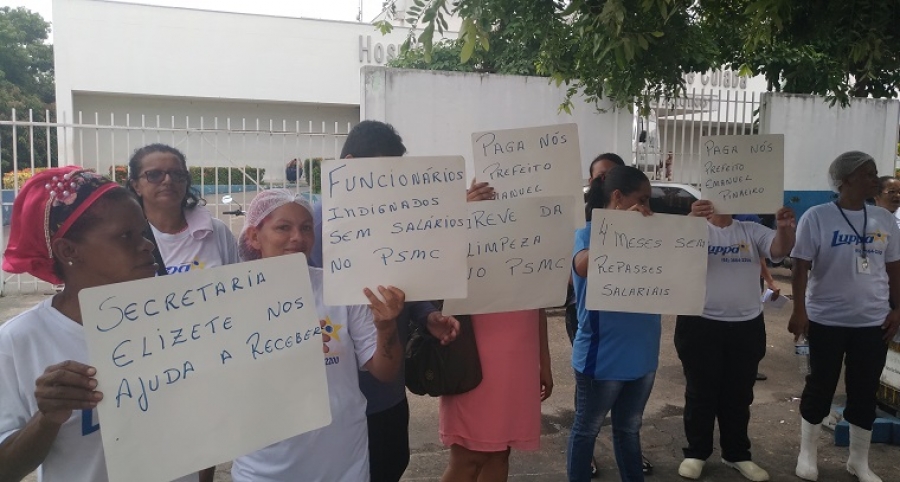 Hosp
Cuiabá
SECRETARIA
ELIZETE NOS
AJUDA A RECEBER
FUNCIONÁRIOS
INDIGNADOS
SEM SALÁRIOS
NO PSMC
PAGA NÓS
PREFEITO
EMANUEL
REVE DA
LIMPEZA
NO PSMC
4 MESES SEM
REPASSES
SALARIAIS
PAGA NÓS
PREFEITO
EMANUEL
PINHEIRO
Luppa
Luppa
Luppa